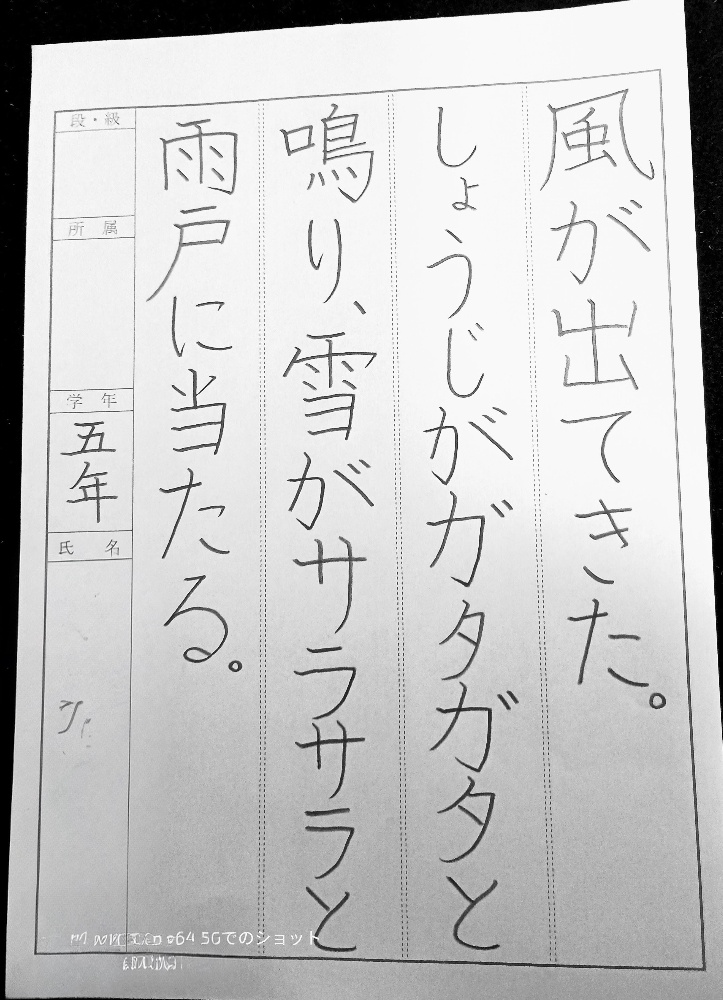 風が出てきた。
しょうじがガタガタと
鳴り、雪がサラサラと
雨戸に当たる。
段・級
所属
学年
五年
氏名
64 5Gでのショット